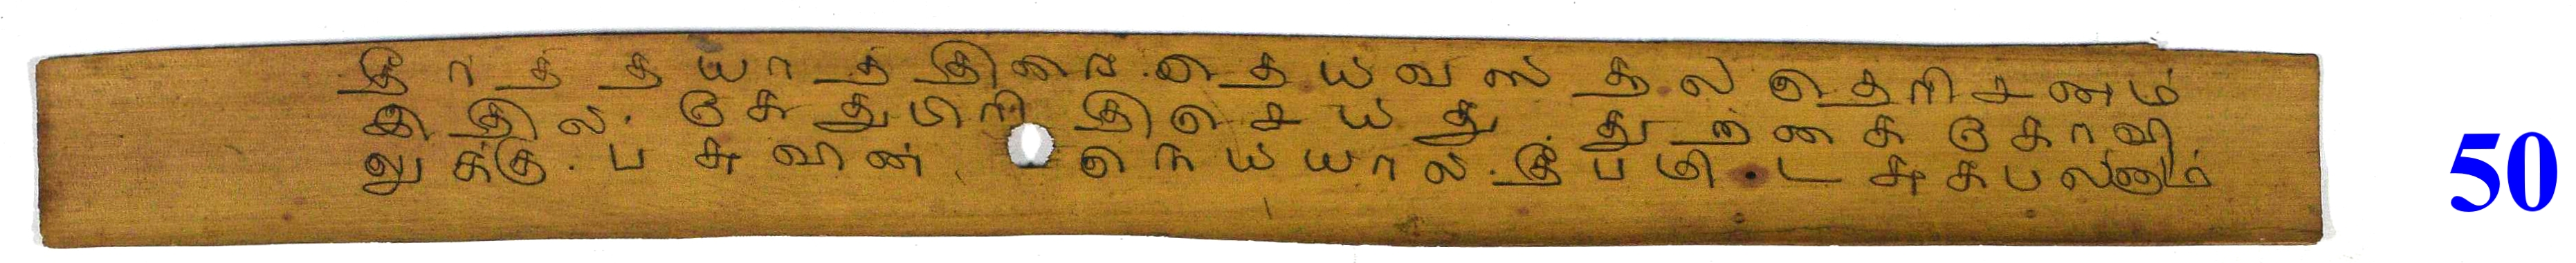 தீர்த்த யாத்திரை. தெய்வஸ்தல தெரிசனம்
இதில். சேதுபிரிதி செய்து. துறகை கோவி
லுக்கு. பசுவின் நெய்யால். தீபமிட சுகபலனாம்
50